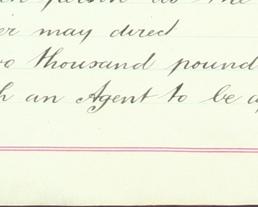 person as the
er may direct
two thousand pound
h an Agent to be a